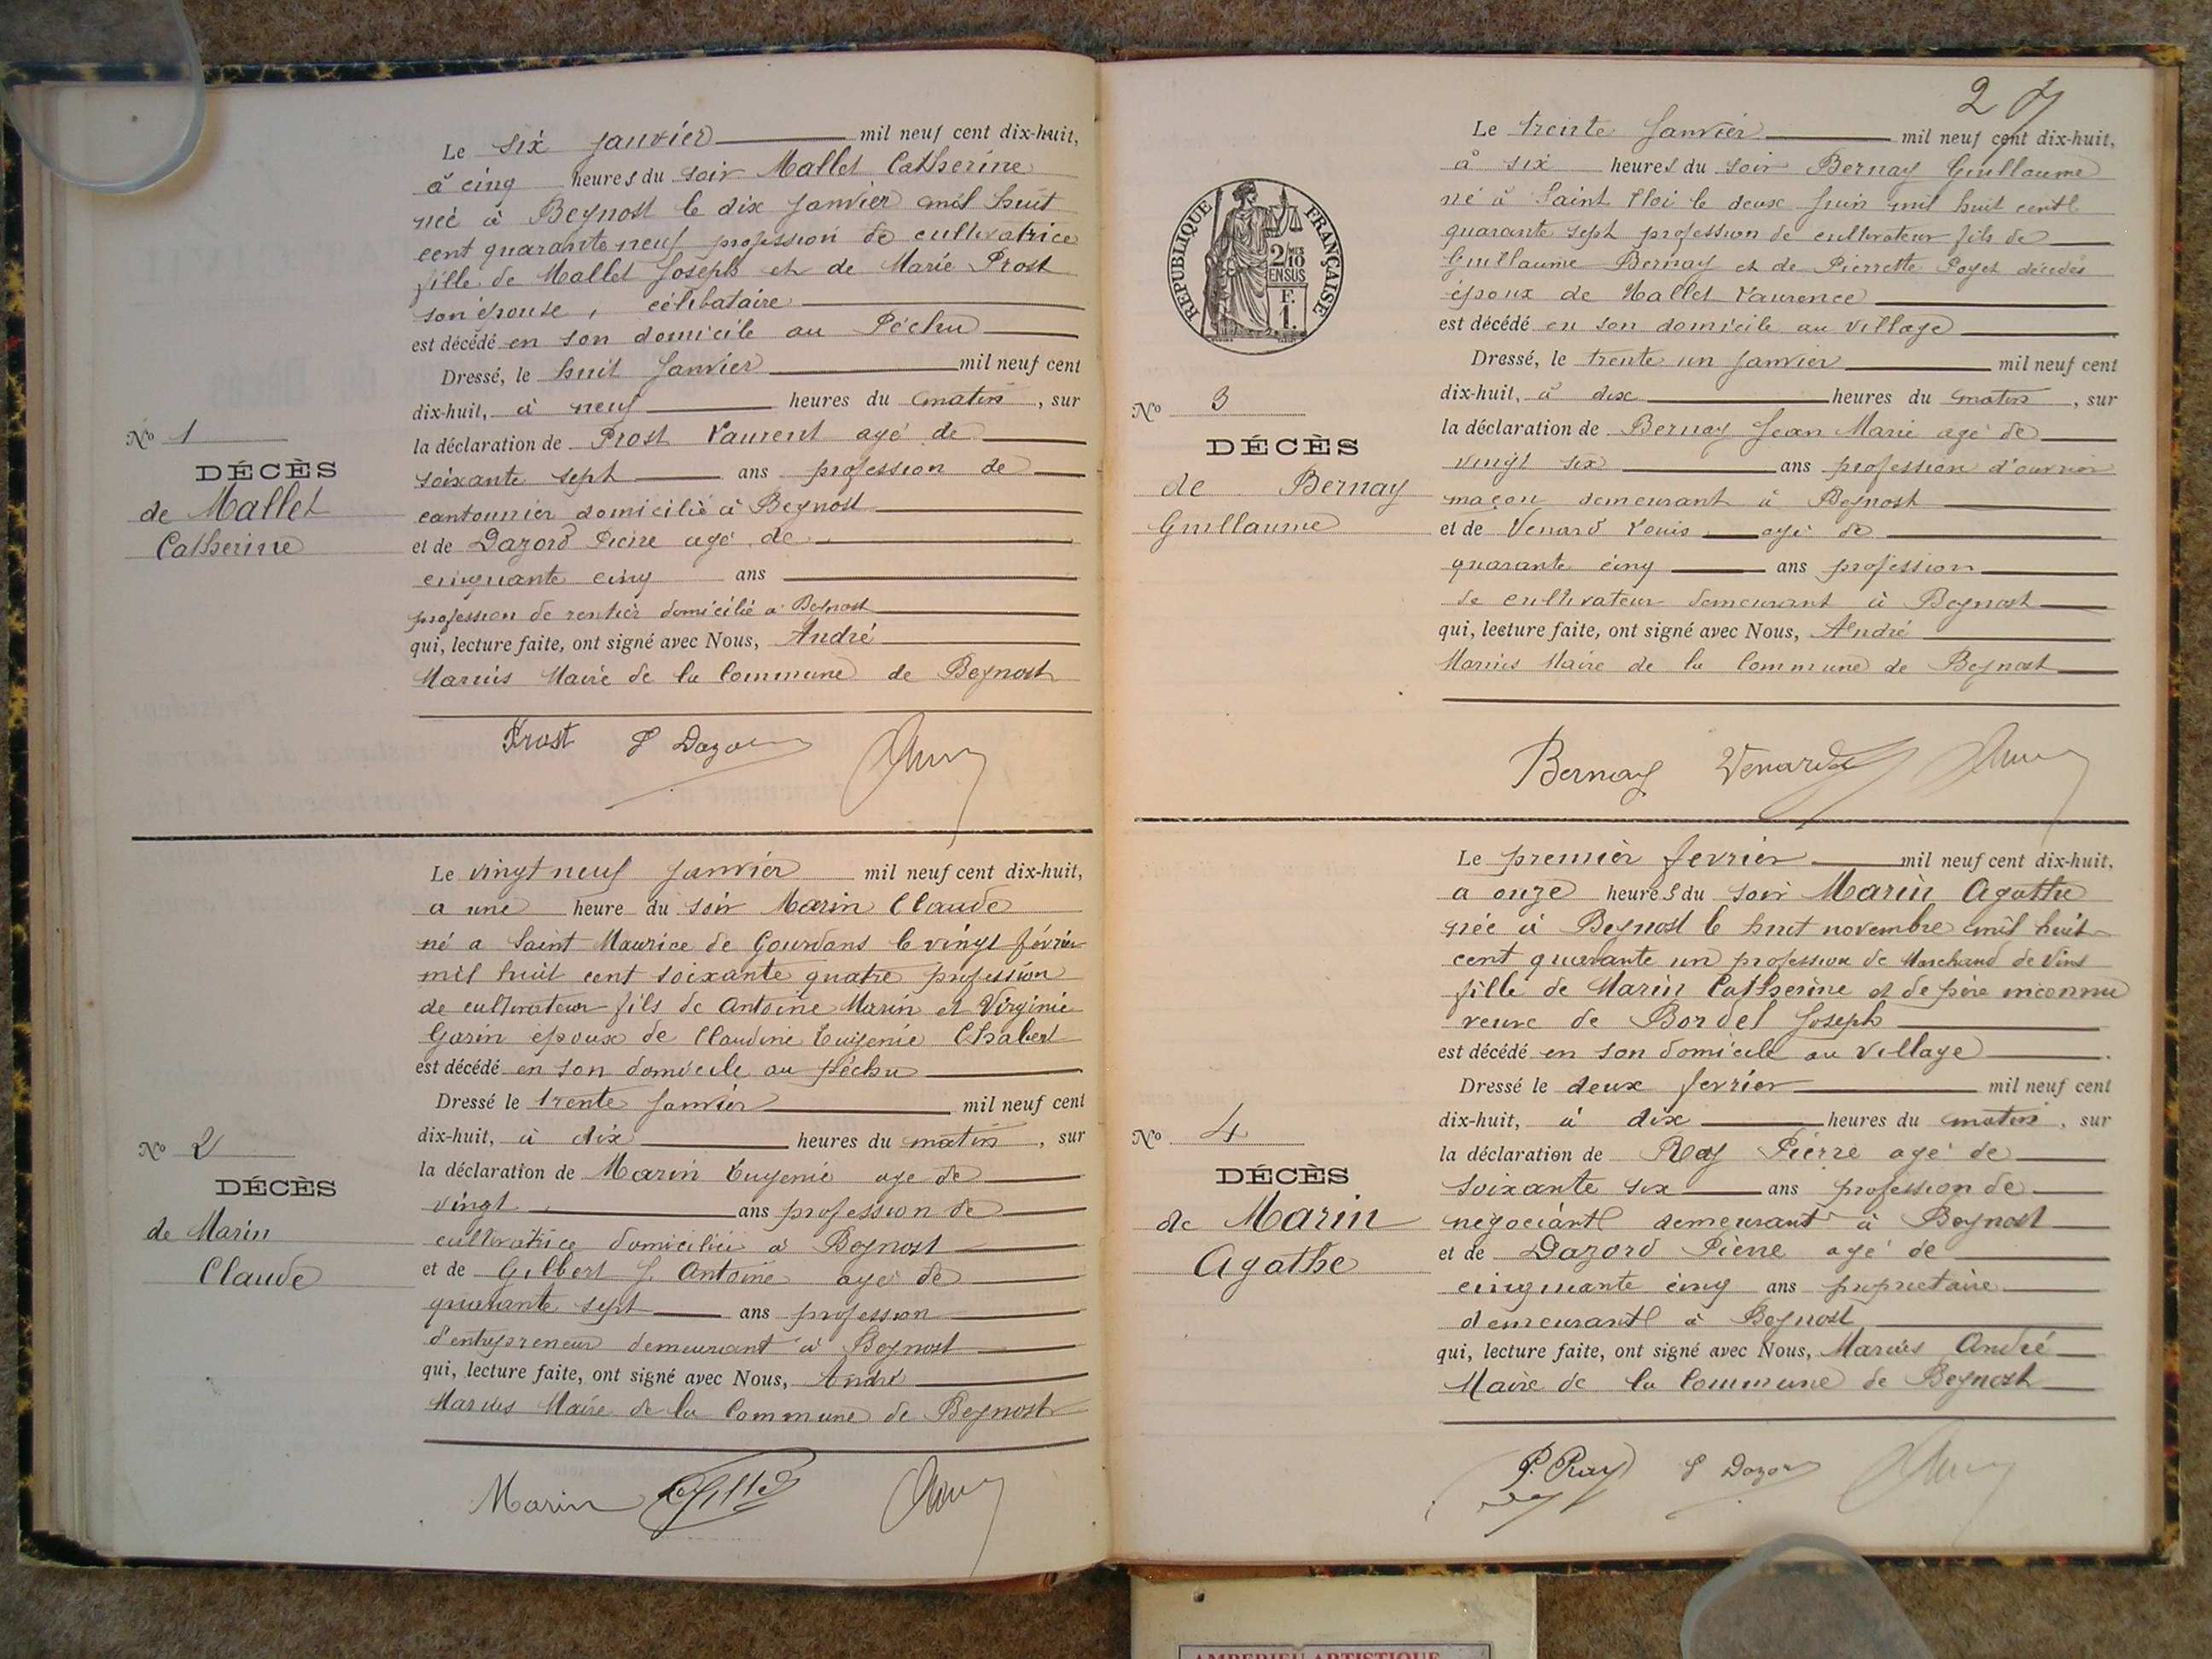 Le six janvier mil neuf cent dix-huit,
à cinq heures du soir Mallet Catherine
née à Beynost le dix janvier mil huit
cent quarante neuf profession de cultivatrice
fille de Mallet Joseph et de Marie Prost
son épouse, célibataire
est décédé en son domicile au Péchu
Dressé, le huit Janvier mil neuf cent
dix-huit, à neuf heures du matin, sur
la déclaration de Prost Laurent agé de
soixante sept ans profession de
cantonnier domicilié à Beynost
et de Dazord Pierre agé de
cinquante cinq ans
profession de rentier domicilié à Beynost
qui, lecture faite, ont signé avec Nous, André
Marius Maire de la Commune de Beynost
No 1
DÉCÈS
de Mallet
Catherine
Prost P Dazord
Le vingt neuf janvier mil neuf cent dix-huit,
a une heure du soir Marin Claude
né a Saint Maurice de Gourdans le vingt février
mil huit cent soixante quatre profession
de cultivateur fils de Antoine Marin et Virginie
Garin époux de Claudine Eugénie Chabert
est décédé en son domicile au péchu
Dressé le trente Janvier mil neuf cent
dix-huit, à dix heures du matin, sur
la déclaration de Marin Eugenie age de
vingt ans profession de
cultivatrice domiciliée à Beynost
et de Gilbert J. Antoine agé de
quarante sept ans profession
d'entrepreneur demeurant à Beynost
qui, lecture faite, ont signé avec Nous, André
Marius Maire de la Commune de Beynost
No 2
DÉCÈS
de Marin
Claude
Marin
2
Le trente Janvier mil neuf cent dix-huit,
à six heures du soir Bernay Guillaume
né à Saint Eloi le deux juin mil huit cent
quarante sept profession de cultivateur fils de
Guillaume Bernay et de Pierrette Poyet décédés
époux de Mallet Laurence
est décédé en son domicile au village
Dressé, le trente un Janvier mil neuf cent
dix-huit, à dix heures du matin, sur
la déclaration de Bernay Jean Marie agé de
vingt six ans profession d'ouvrier
maçon demeurant à Beynost
et de Venard Louis agé de
quarante cinq ans profession
de cultivateur demeurant à Beynost
qui, lecture faite, ont signé avec Nous, André
Marius Maire de la Commune de Beynost
RÉPUBLIQUE FRANÇAISE
2/10 MES
EN SUS
F.
1.
No 3
DÉCÈS
de Bernay
Guillaume
Bernay Venard
Le premier fevrier mil neuf cent dix-huit,
a onze heures du soir Marin Agathe
née à Beynost le huit novembre mil huit
cent quarante un profession de Marchand de Vins
fille de Marin Catherine et de père inconnu
veuve de Bordel Joseph
est décédé en son domicile au village
Dressé le deux fevrier mil neuf cent
dix-huit, à dix heures du matin, sur
la déclaration de Ray Pierre agé de
soixante six ans profession de
négociant demeurant à Beynost
et de Dazord Pierre agé de
cinquante cinq ans propriétaire
demeurant à Beynost
qui, lecture faite, ont signé avec Nous, Marius André
Maire de la Commune de Beynost
No 4
DÉCÈS
de Marin
Agathe
P. Ray P Dazord
AMBERIEU ARTISTIQUE